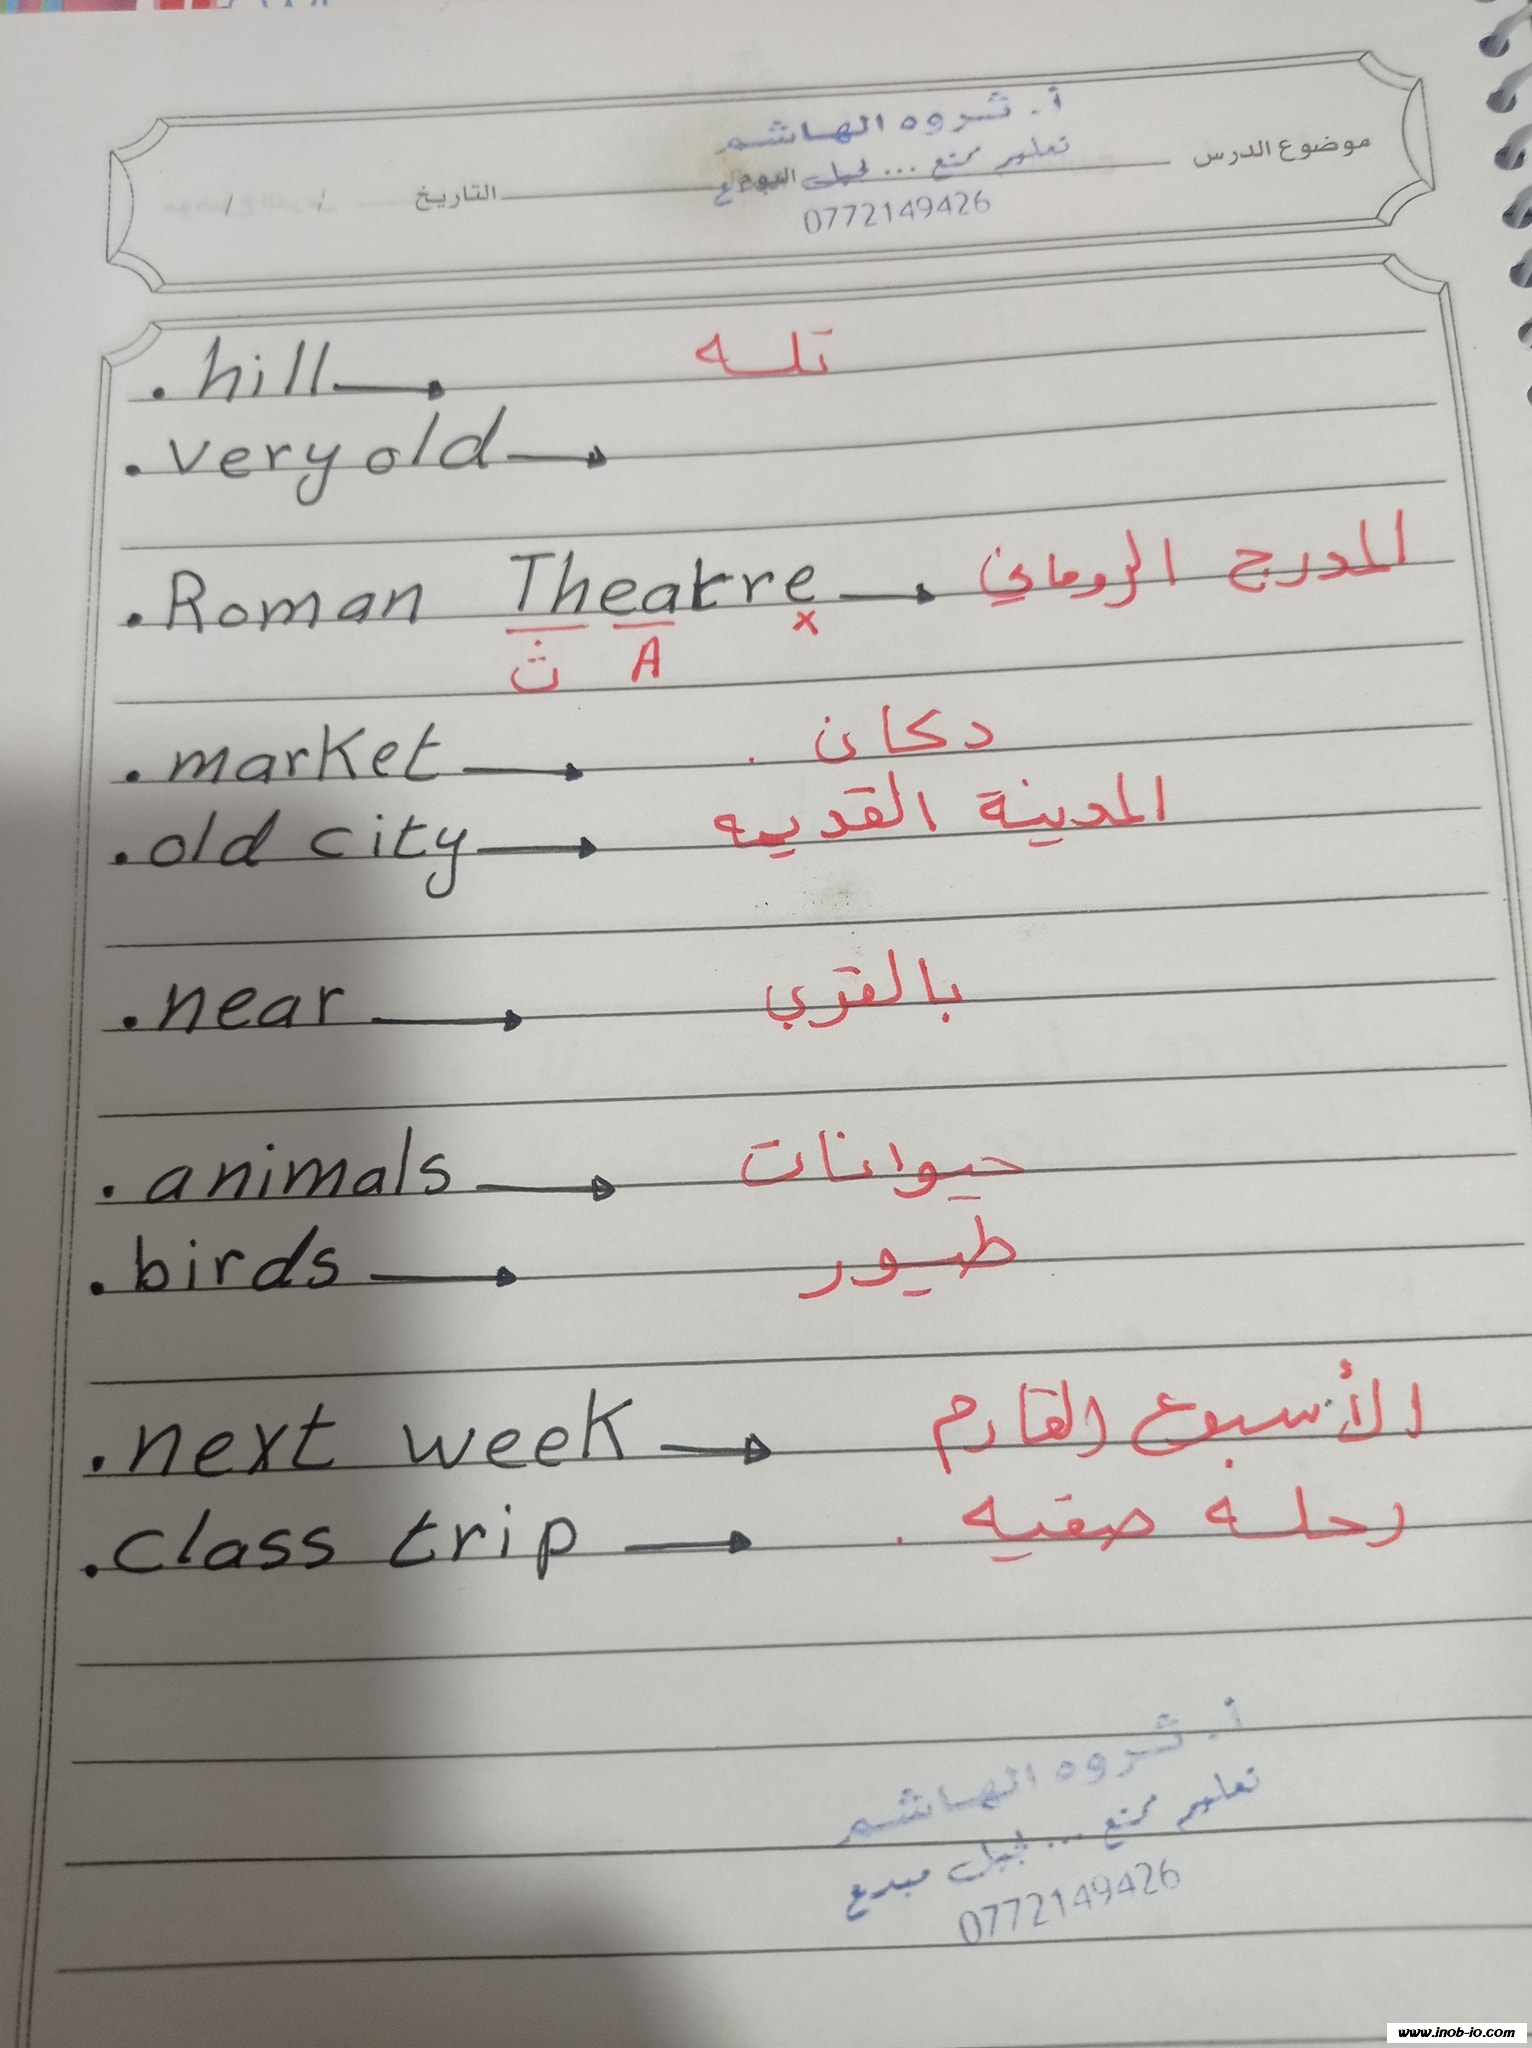 أ. ثروه الهاشم
تعليم ممتع ... لجيل مبدع
0772149426
موضوع الدرس
اليوم
التاريخ / /
. hill → تله
. very old →
. Roman Theatre → المدرج الروماني
ث A x
. market → دكان .
. old city → المدينة القديمه
. near → بالقرب
. animals → حيوانات
. birds → طيور
. next week → الأسبوع القادم
. class trip → رحله صفيه .
أ. ثروه الهاشم
تعليم ممتع ... لجيل مبدع
0772149426
www.inob-io.com